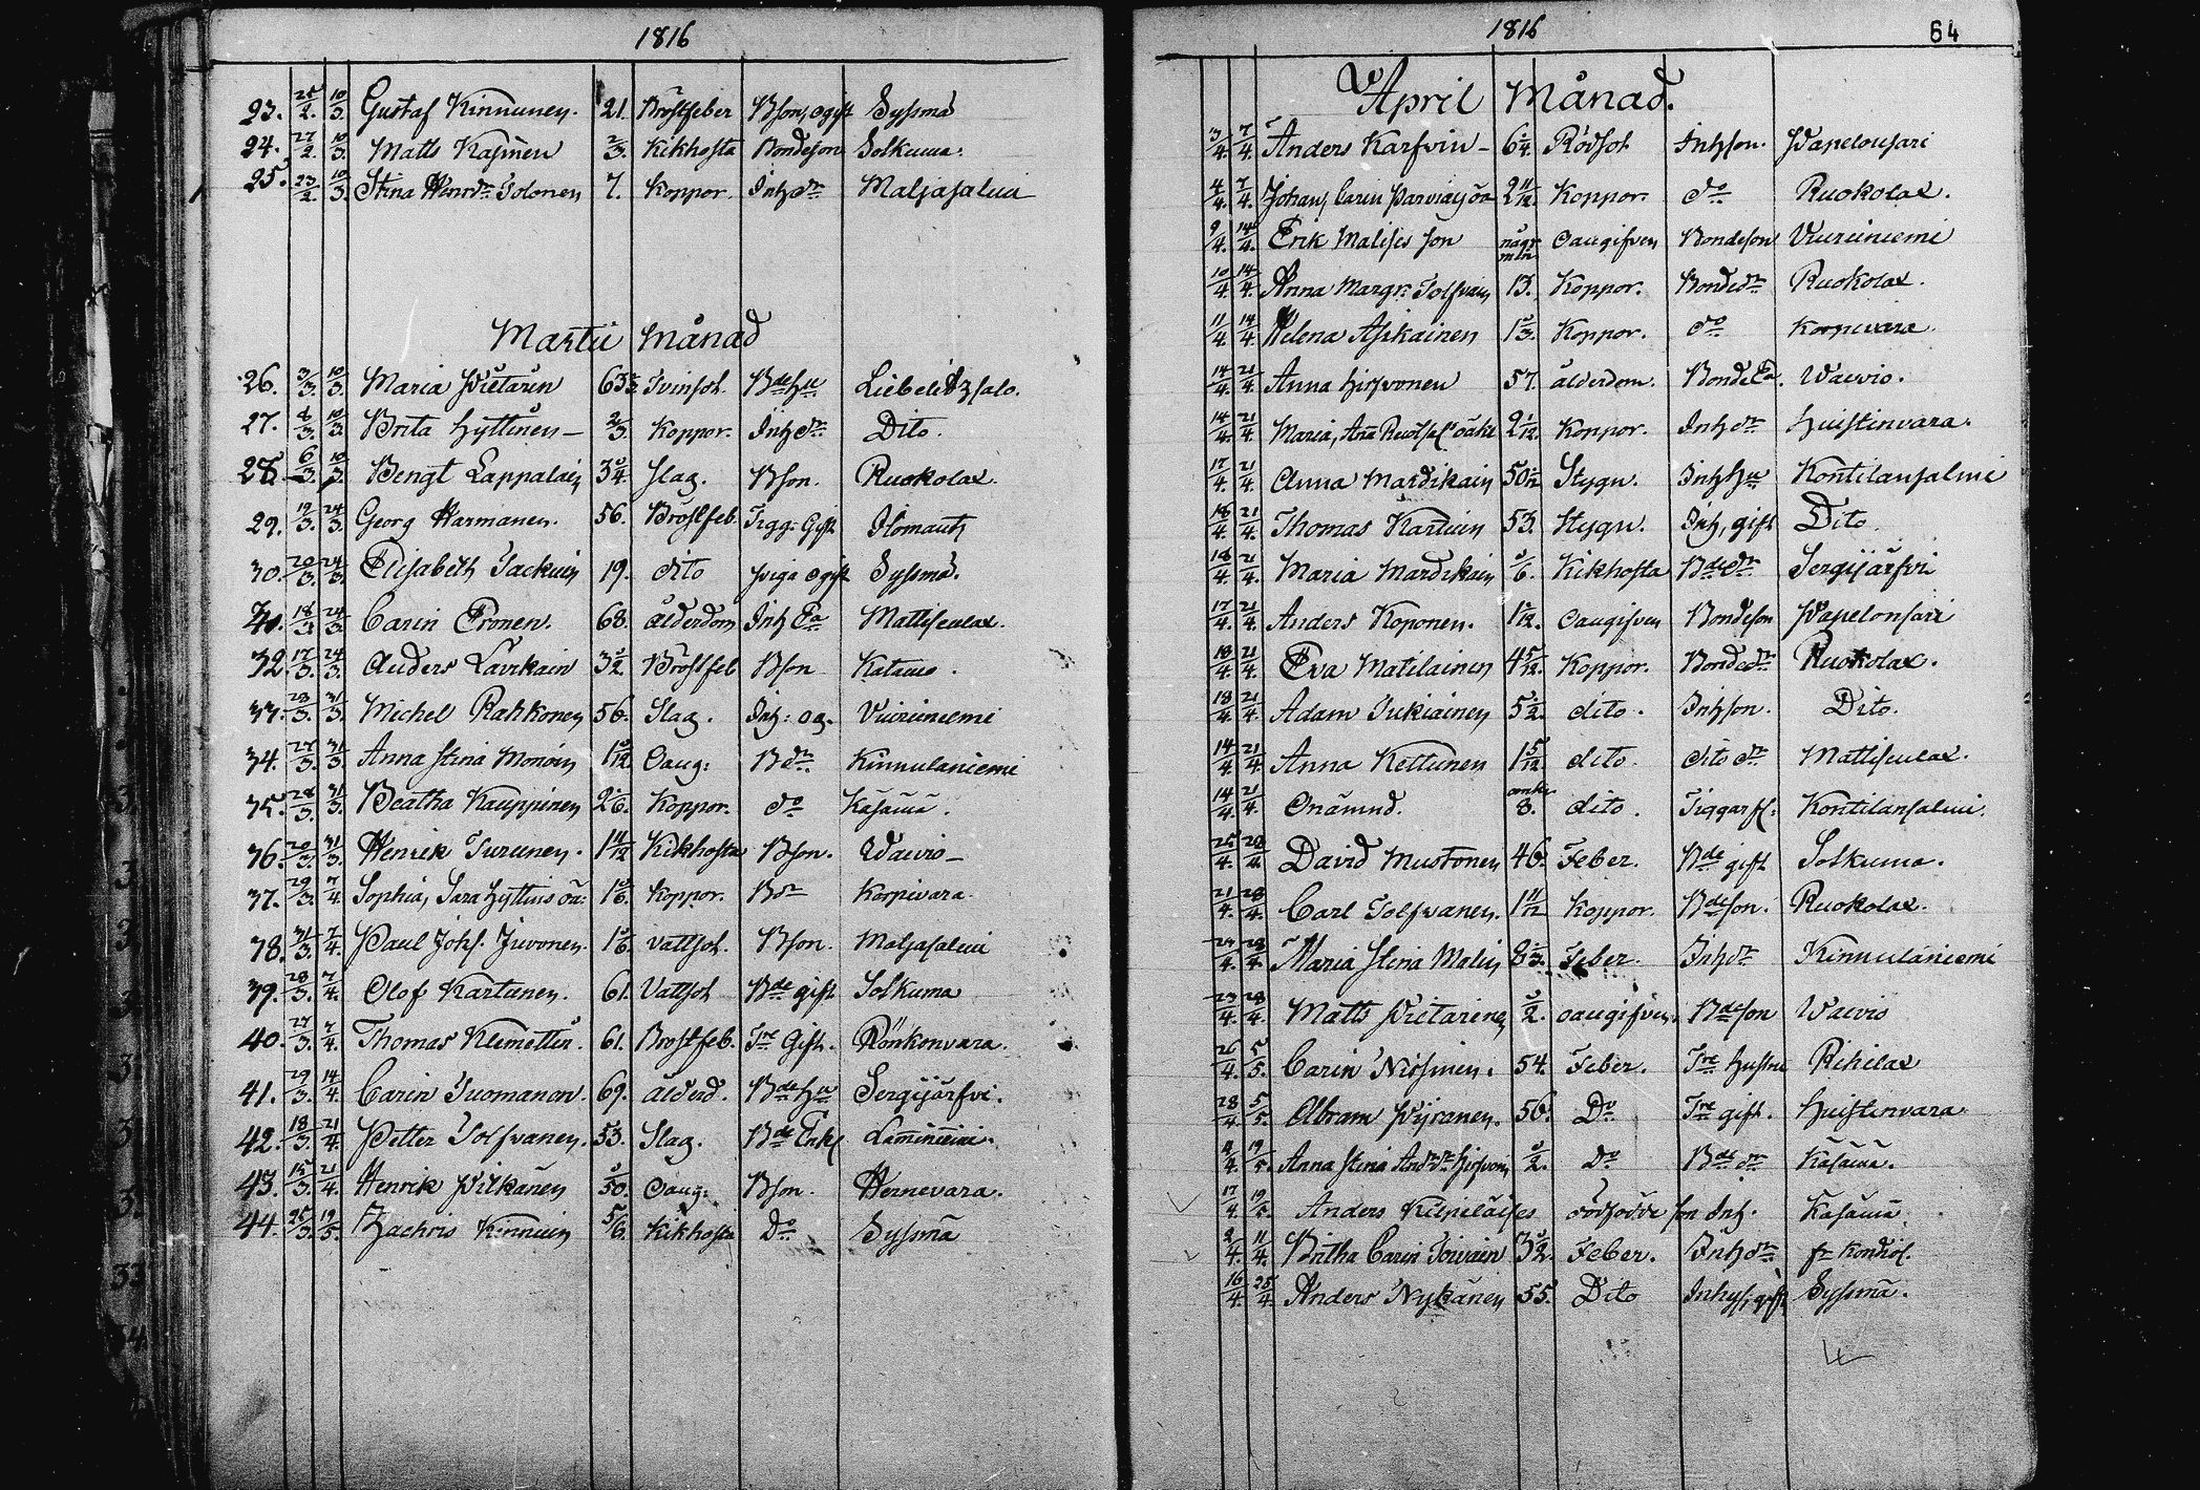 1816
23. 25/2. 10/3. Gustaf Kinnunen. 21. Bröstfeber Bson, ogift Syssmä
24. 27/2. 10/3. Matts Kasinen 2/3. Kikhosta Bondeson Solkuma.
25. 23/2. 10/3. Stina Henrdr Tolonen 7. Koppor. Inhdr Maljasalmi
Martii månad
26. 3/3. 10/3. Maria Pietarin 63 Tvinsot. Bdehu Liebelitzsalo.
27. 8/3. 10/3. Brita Hyttinen 2/3. Koppor. Inhdr Dito.
28. 6/3. 10/3. Bengt Lappalain 3/4. Slag. Bson. Ruokolax.
29. 19/3. 24/3. Georg Harmanen. 56. Bröstfeb. Tigg: Gift Ilomants
30. 20/3. 24/3. Elisabeth Jackuin 19. dito piga ogift Syssmä.
18/3 24/3 Carin Eronen. 68. ålderdom Inh Ea Mattiscalax.
32. 17/3. 24/3. Anders Lavikain 3/2. Bröstfeb Bson Katamo.
33. 28/3. 31/3. Michel Rahkonen 56. Slag. Inh: og. Vuiriniemi
34. 27/3. 31/3. Anna Stina Monoin 1/12 Oaug: Bdr. Kinnulaniemi
35. 28/3. 31/3. Beatha Kauppinen 2/6. Koppor. do Käsämä.
36. 20/3. 31/3. Henrik Turunen. 1 11/12 Kikhosta Bson. Waivio
37. 29/3. 7/4. Sophia, Sara Hyttins oä: 1/6. Koppor. Bdr Korpivara.
38. 31/3. 7/4. Paul Johs. Juvonen. 1/6. Vattsot. Bson. Maljasalmi
39. 28/3. 7/4. Olof Kartanen. 61. Vattsot Bde gift Solkuma
40. 27/3. 7/4. Thomas Klemettin. 61. Brostfeb. Tre Gift. Rönkönvara.
41. 29/3. 14/4. Carin Tuomanan. 69. ålderd. Bdehu Sergijärfvi.
42. 18/3. 21/4. Petter Tolfvanen. 53. Slag. Bde Enkl Lamminiemi.
43. 15/3. 21/4. Henrik Pitkänen /50. Oaug: Bson. Hernevara.
44. 25/3. 19/5. Zachris Kinnuin 5/6. Kikhosta Do Syssmä
1816
64
April Månad.
3/4. 7/4. Anders Karfvin 6/4. Rödsot Inhson. Papelonsari
4/4. 7/4. Johan, Carin Parviays oä 2 11/12. Koppor. do Ruokolax.
9/4. 14/4. Erik Malises son några min. oangifven Bondeson Vuiriniemi
10/4. 14/4. Anna Margr: Tolfvain 13. Koppor. Bondedr Ruokolax.
11/4. 14/4. Helena Asikainen 1/3. Koppor. do Korpivara.
14/4. 21/4. Anna Hirfvonen 57. ålderdom. BondeEa. Waivio.
14/4. 21/4. Maria, oäkt 2 1/12. Koppor. Inhdr Huistinvara.
17/4. 21/4. Anna Mardikain 50 Stygn. Inhhu Kontilansalmi
18/4. 21/4. Thomas Kartuin 53. Stygn. Inh, gift Dito.
18/4. 21/4. Maria Mardikain /6. Kikhosta Bdedr Sergijärfvi
17/4. 21/4. Anders Koponen. 1/12. oangifven Bondeson Papelonsari
18/4. 21/4. Eva Matilainen 4 5/12. Koppor. Bondedr Ruokolax.
18/4. 21/4. Adam Tukiainen 5/2. dito. Inhson. Dito.
14/4. 21/4. Anna Kettunen 1 5/12. dito. dito dr Mattisculax.
14/4. 21/4. Onämnd. 8. dito. Tiggar fl: Kontilansalmi.
25/4. 28/4. David Mustonen 46. Feber. Bde gift Solkuma.
21/4. 28/4. Carl Tolfvanen. 1 11/12 Koppor. Bdeson. Ruokolax.
24/4. 28/4. Maria Stina Malin 8/3. Feber. Inhdr Kinnulaniemi
23/4. 28/4. Matts Pietarinen /2. oangifven. Bdeson Waivio
26/4. 5/5. Carin Nissinen. 54. Feber. Tre hustru Rihilax
28/4 5/5. Abram Pyranen. 56. Do Tre gift. Huistinvara.
19/5. Anna Stina Andrsdr Hirfvoin /2. Do Bde dr Käsämä.
17/4 19/5 Anders Kilpiläises dödfödde son Inh. Käsämä.
2/4. 11/4. Britha Carin Toivain 3/2. Feber. Inhdr fr Kondiol.
16/4. 25/4. Anders Nykänen 55. Dito Inhys, gift Syssmä.